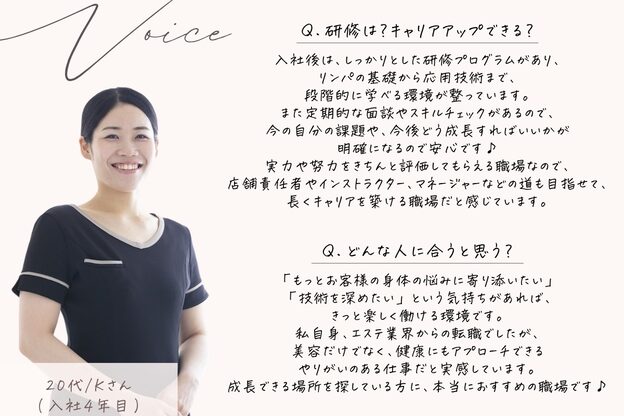 Voice
Q.研修は?キャリアアップできる?
入社後は、しっかりとした研修プログラムがあり、
リンパの基礎から応用技術まで、
段階的に学べる環境が整っています。
また定期的な面談やスキルチェックがあるので、
今の自分の課題や、今後どう成長すればいいかが
明確になるので安心です♪
実力や努力をきちんと評価してもらえる職場なので、
店舗責任者やインストラクター、マネージャーなどの道も目指せて、
長くキャリアを築ける職場だと感じています。
Q.どんな人に合うと思う?
「もっとお客様の身体の悩みに寄り添いたい」
「技術を深めたい」という気持ちがあれば、
きっと楽しく働ける環境です。
私自身、エステ業界からの転職でしたが、
美容だけでなく、健康にもアプローチできる
やりがいのある仕事だと実感しています。
成長できる場所を探している方に、本当におすすめの職場です♪
20代/Kさん
(入社4年目)